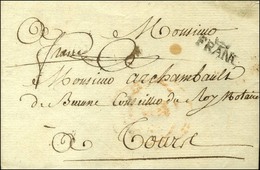 Monsieur
franc
FRANC
Monsieur archambault
de Conseiller du Roy Notaire
A Tours